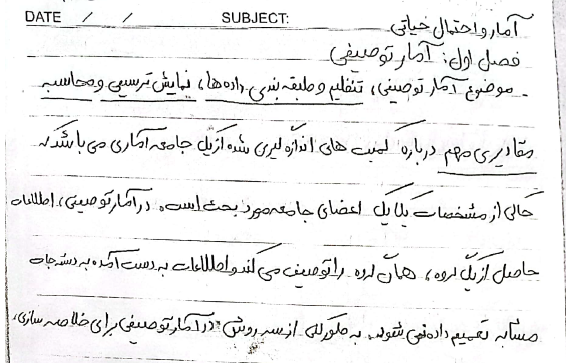 DATE / / SUBJECT:
آمار و احتمال حیاتی
فصل اول: آمار توصیفی
. موضوع آمار توصیفی، تنظیم و طبقه بندی داده‌ها، نمایش ترسیمی و محاسبه
مقادیری مهم درباره کمیت های اندازه گیری شده از یک جامعه آماری می باشد که
حاکی از مشخصات یکایک اعضای جامعه مورد بحث است. در آمار توصیفی، اطلاعات
حاصل از یک گروه، همان گروه را توصیف می کند و اطلاعات به دست آمده به دسته جات
مشابه تعمیم داده نمی شود. به طور کلی از سه روش در آمار توصیفی برای خلاصه سازی،